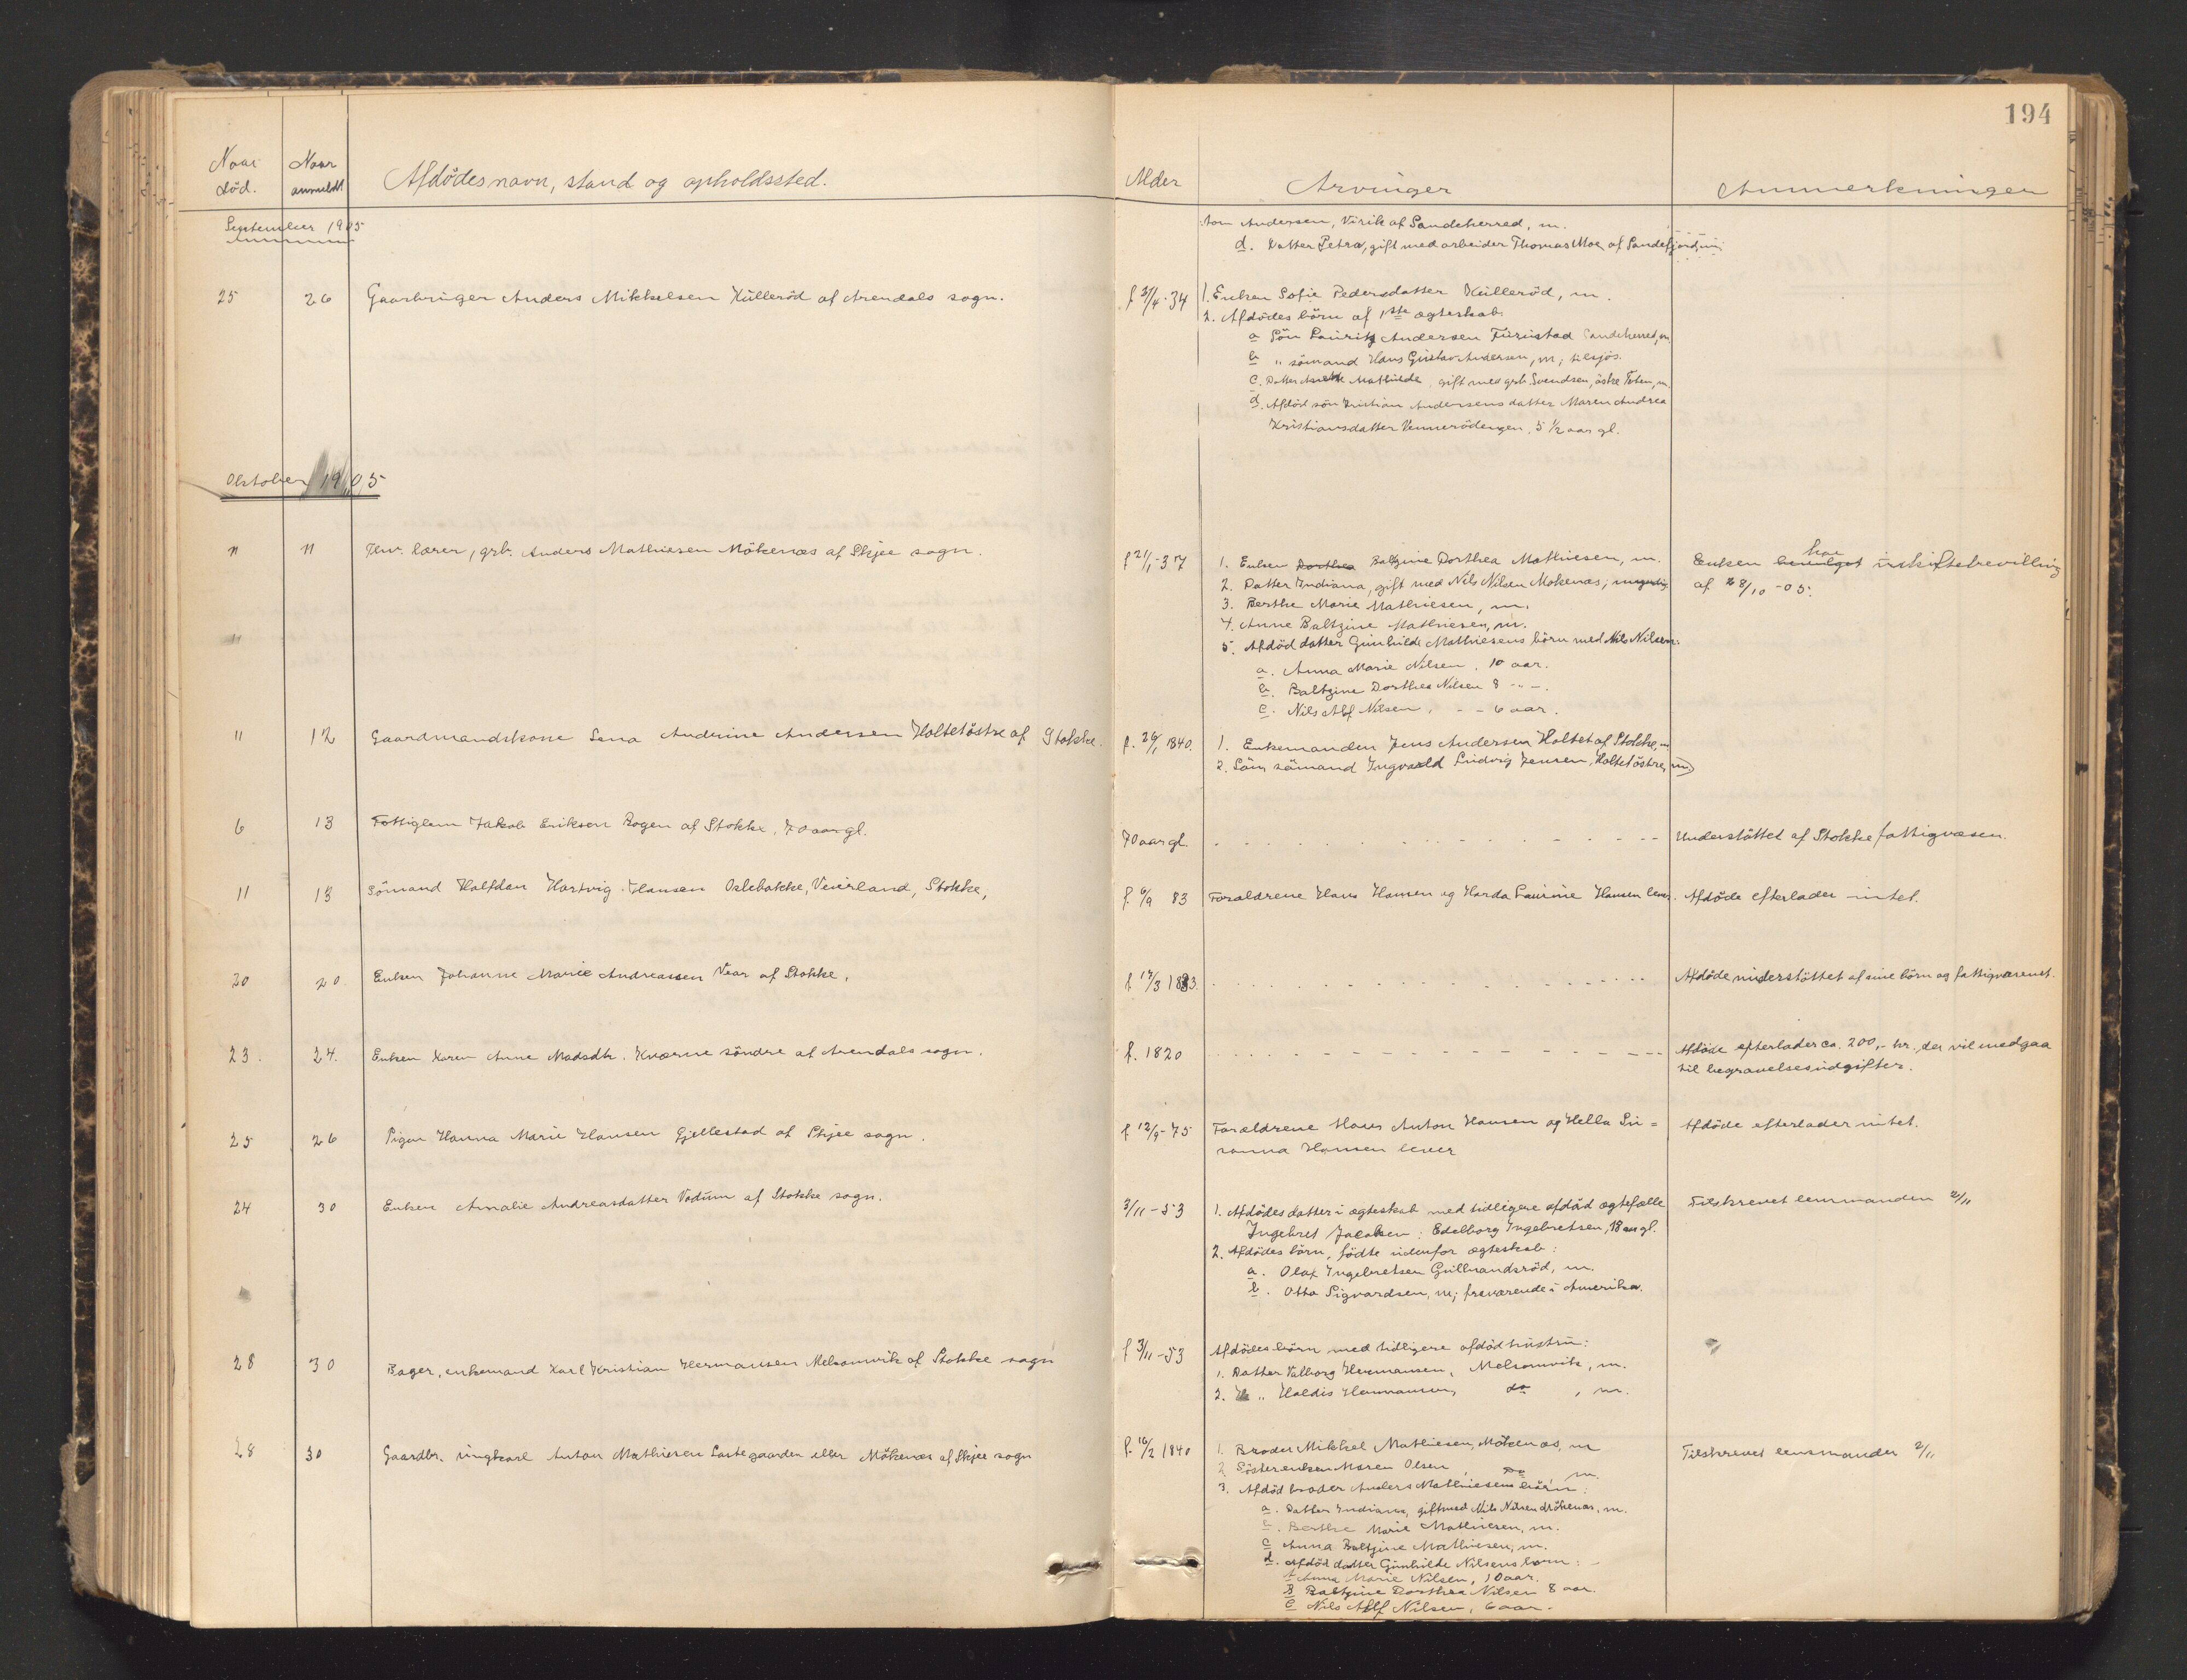 194
Naar død.
Naar anmeldt
Afdødes navn, stand og opholdssted.
Alder
Arvinger
Anmerkninger
September 1905
Andersen, Virik af Sandeherred, m.
d. Datter Petra, gift med arbeider Thomas Moe, af Sandefjord, m.
25 26 Gaardbruger Anders Mikkelsen Külleröd af Arendals sogn. f 3/4-34
1. Enken Sofie Pedersdatter Külleröd, m.
2. Afdödes börn af 1ste ægteskab
a Sön Lauritz Andersen Fürustad Sandeherred, m.
b " sömand Hans Gustav Andersen, m; tilsjös.
c. Datter Mathilde, gift med grb. Svendsen, östre Toten, m.
d. Afdöd sön Kristian Andersens datter Maren Andrea
Kristiansdatter Vennerödengen, 5 1/2 aar gl.
Oktober 1905
11 11 lærer, grb. Anders Mathiesen Mökenæs af Skjee sogn. f 21/1-37
1. Enken Dorthea Baltzine Dorthea Mathiesen, m.
2. Datter Indiana, gift med Nils Nilsen Mökenæs; myndig
3. Berthe Marie Mathiesen, m.
4. Anne Baltzine Mathiesen, m.
5. Afdöd datter Gunhilde Mathiesens börn med Nils Nilsen:
a. Anna Marie Nilsen, 10 aar.
b. Baltzine Dorthea Nilsen 8 -"-.
c. Nils Alf Nilsen, - - 6 aar.
Enken har uskiftebevilling
af 28/10-05.
11 12 Gaardmandskone Lena Anderine Andersen Holtet östre af Stokke. f. 26/1 1840.
1. Enkemanden Jens Andersen Holtet af Stokke, m
2. Sön, sömand Ingvald Ludvig Jensen, Holtet östre, m
6 13 Fattiglem Jakob Eriksen Bogen af Stokke, 70 aar gl. 70 aar gl.
Understöttet af Stokke fattigvæsen.
11 13 Sömand Halfdan Hartvig Hansen Oslebakke, Veierland, Stokke, f. 6/9 83
Forældrene Hans Hansen og Harda Laurine Hansen lever. Afdöde efterlader intet.
20 20 Enken Johanne Marie Andreassen Vear af Stokke.
Afdöde understöttet af sine börn og fattigvæsenet.
23. 24. Enken Karen Anne Madsdtr. Kværne söndre af Arendals sogn. f. 1820
Afdöde efterlader ca. 200,- kr., der vil medgaa
til begravelsesudgifter.
25 26 Pigen Hanna Marie Hansen Gjellestad af Skjee sogn. f 12/9-75
Forældrene Hans Anton Hansen og Hella Su=
sanna Hansen lever
Afdöde efterlader intet.
24 30 Enken Amalie Andreasdatter Vodüm af Stokke sogn. 3/11-53
1. Afdödes datter i ægteskab med tidligere afdöd ægtefælle
Ingebret Jacobsen: Edelborg Ingebretsen, 18 aar gl.
2. Afdödes börn, födte udenfor ægteskab:
a. Olaf Ingebretsen Gullrandsröd, m.
b. Otto Sigvardsen, m; fraværende i Amerika.
Tilskrevet lensmanden 2/11
28 30 Bager, enkemand Karl Kristian Hermansen Melsomvik af Stokke sogn f 3/11-53
Afdödes börn med tidligere afdöd hustru:
1. Datter Valborg Hermansen, Melsomvik, m.
2. " Haldis Hermansen, do, m.
28 30 Gaardbr. ungkarl Anton Mathiesen Lastegaarden eller Mökenæs af Skjee sogn f. 16/2 1840
1. Broder Mikkel Mathiesen, Mökenæs, m
2. Söster enken Maren Olsen, Do m.
3. Afdöd broder Anders Mathiesens börn:
a. Datter Indiana, gift med Nils Nilsen Mökenæs, m.
b. Berthe Marie Mathiesen, m.
c Anna Baltzine Mathiesen, m.
d. Afdöd datter Gunhilde Nilsens barn:
A Anna Marie Nilsen, 10 aar.
B Baltzine Dorthea Nilsen 8 aar.
C Nils Alf Nilsen, 6 aar.
Tilskrevet lensmanden 2/11